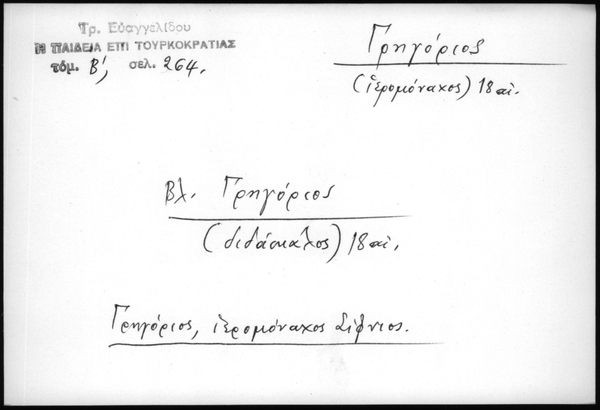 Τρ. Εὐαγγελίδου
Η ΠΑΙΔΕΙΑ ΕΠΙ ΤΟΥΡΚΟΚΡΑΤΙΑΣ
τόμ. Β', σελ. 264.
Γρηγόριος
(ἱερομόναχος) 18 αἰ.
Βλ. Γρηγόριος
(διδάσκαλος) 18 αἰ.
Γρηγόριος, ἱερομόναχος Σίφνιος.